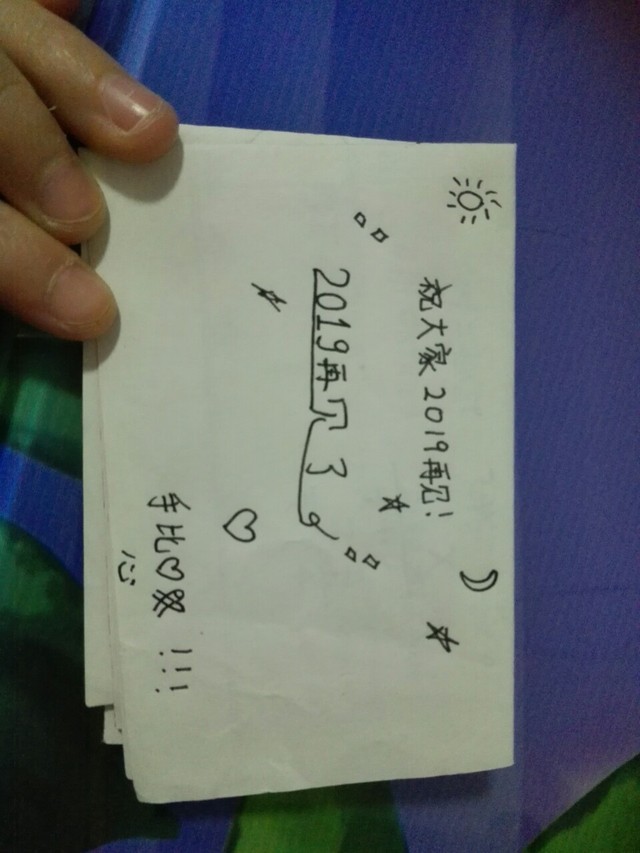 祝大家2019再见!
2019再见3
手比♡ !!!